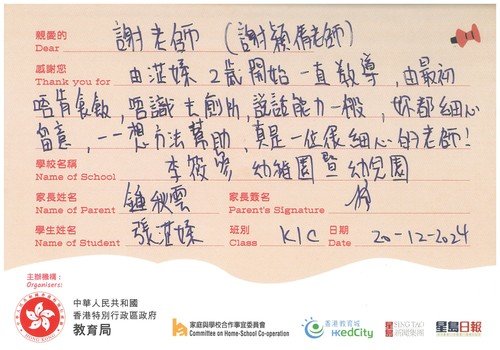 親愛的 謝老師 (謝穎倩老師)
Dear
感謝您 由茳婇2歲開始一直教導,由最初
Thank you for
唔肯食飯,唔識去廁所,說話能力一般,妳都細心
留意,一一想方法幫助,真是一位很細心的老師!
學校名稱 李筱参 幼稚園暨幼兒園
Name of School
家長姓名 鍾秋雲 家長簽名
Name of Parent Parent's Signature
學生姓名 張茳婇 班別 K1C 日期 20-12-2024
Name of Student Class Date
主辦機構:
Organisers:
HONG KONG
中華人民共和國
香港特別行政區政府
教育局
家庭與學校合作事宜委員會
Committee on Home-School Co-operation
香港教育城
HKedCity
星島 SING TAO
新聞集團
星島日報